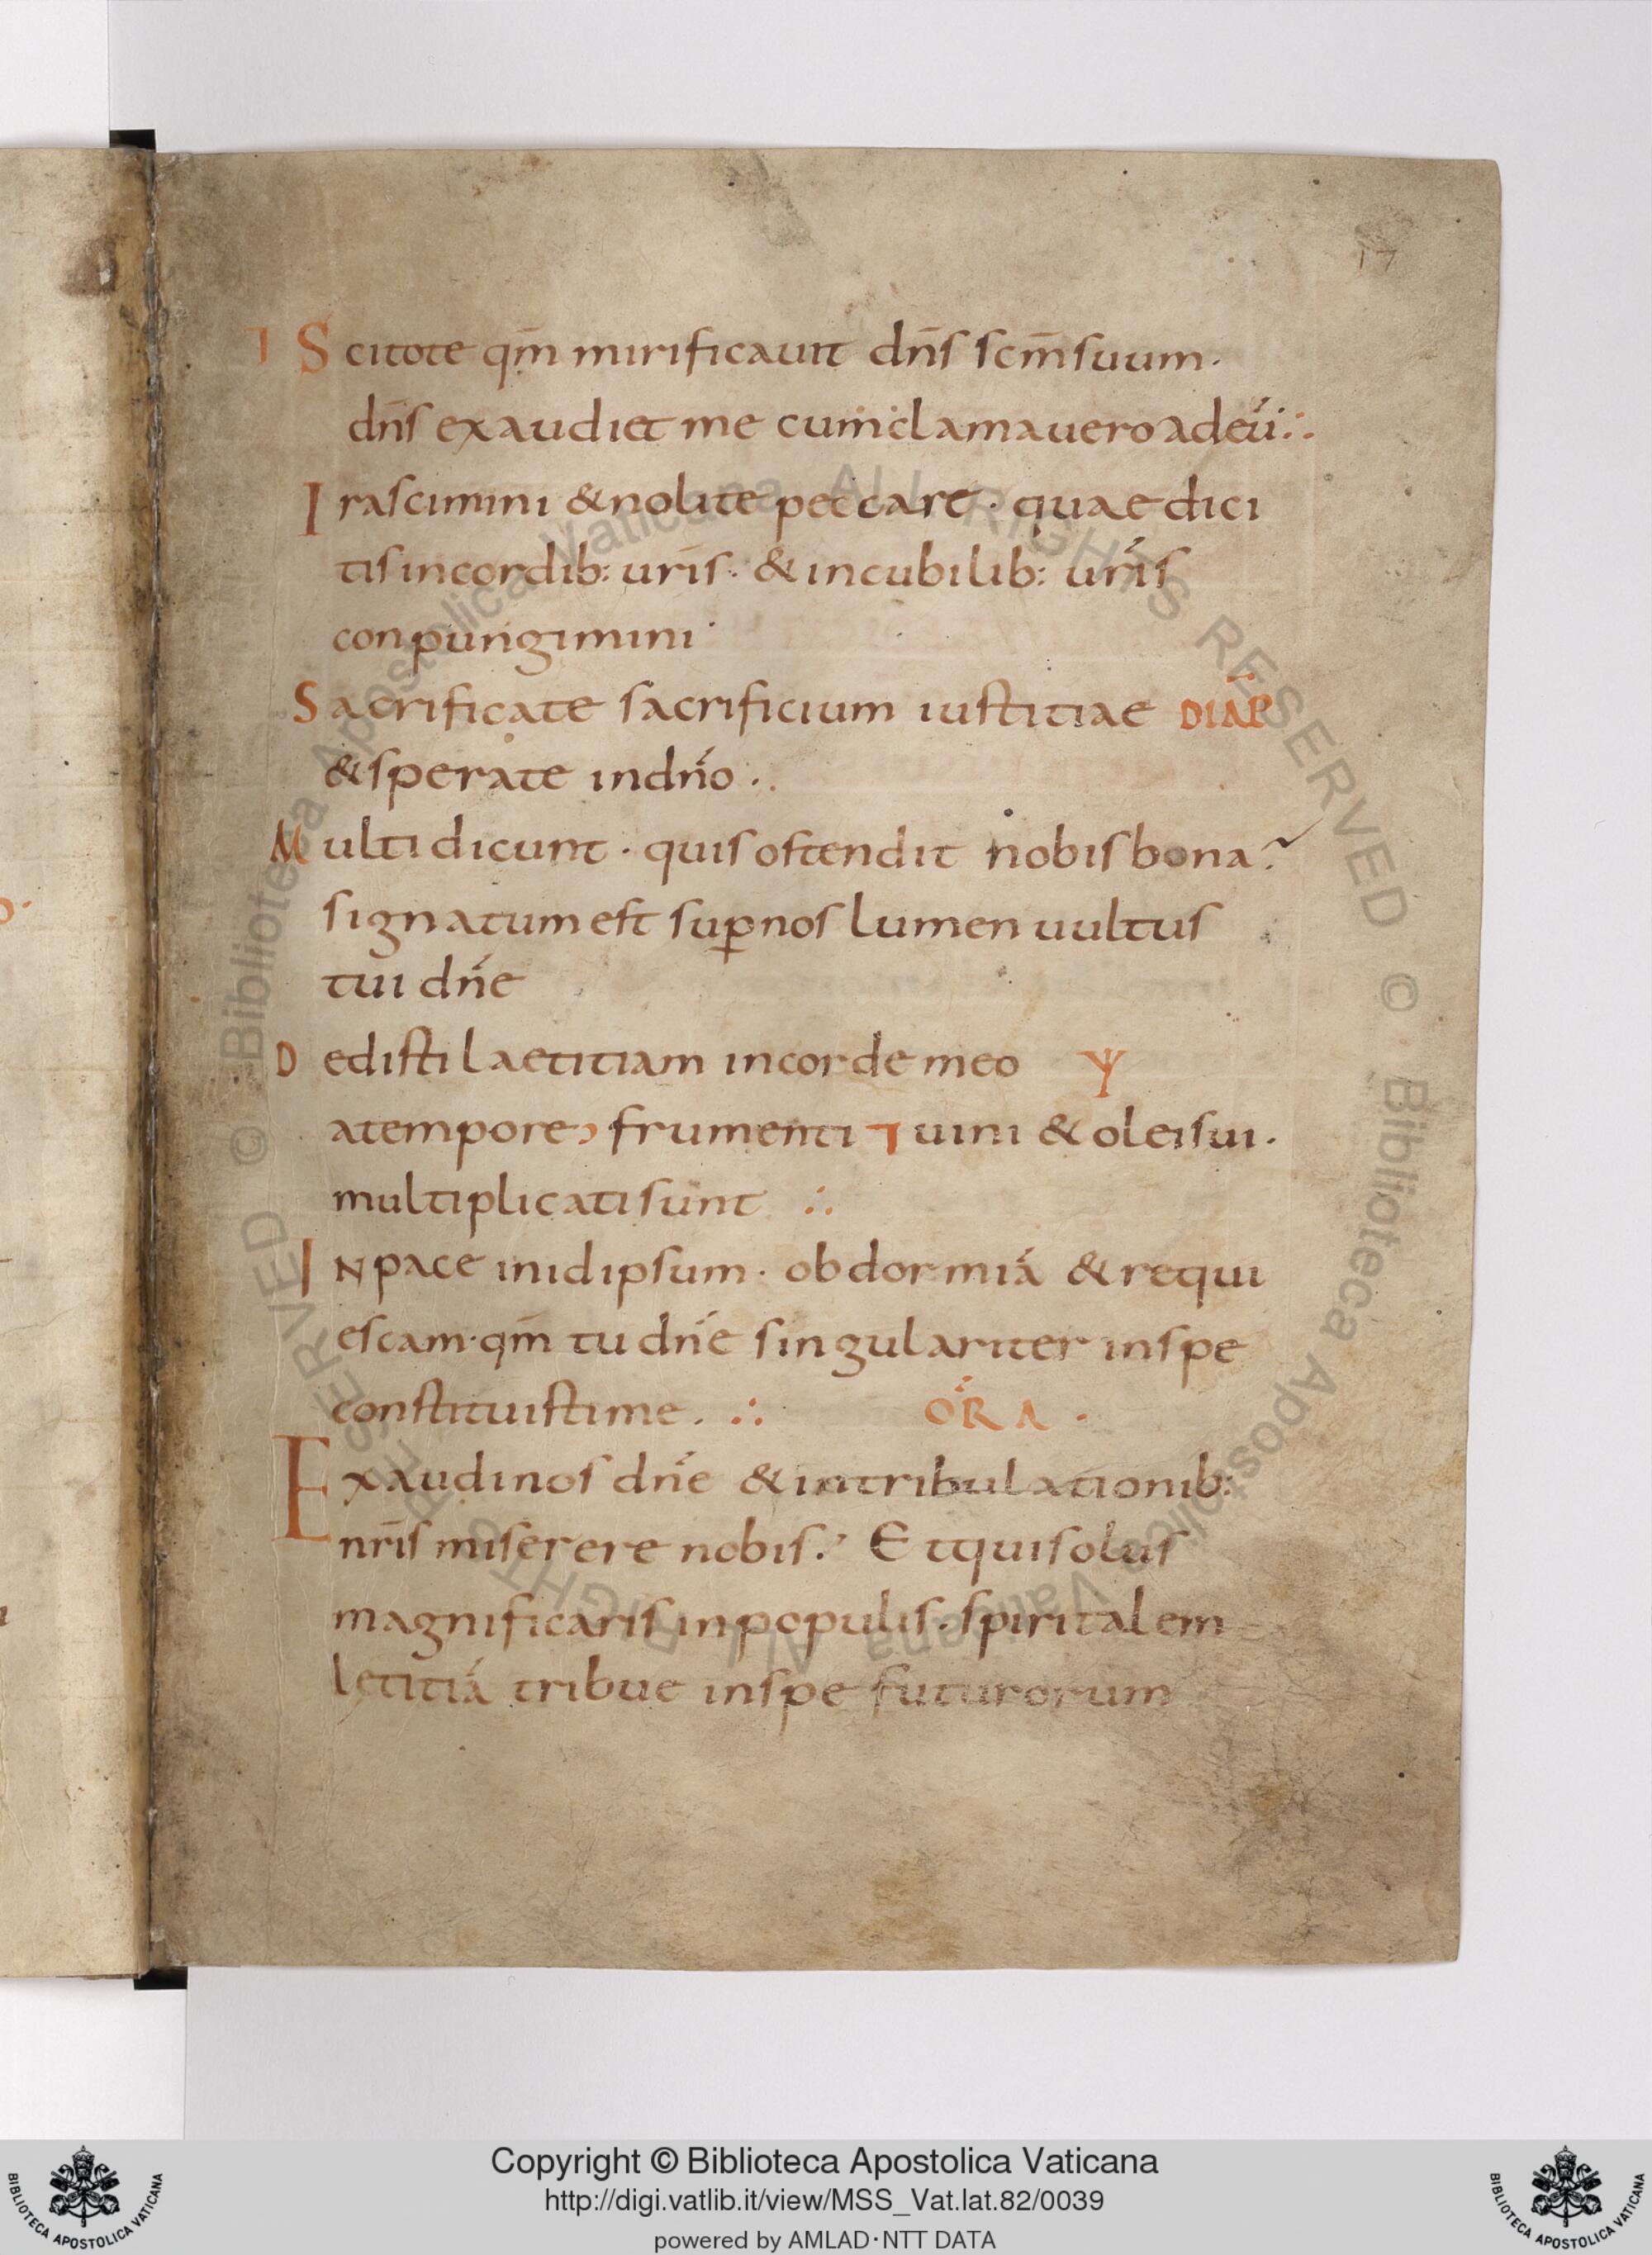 17
⁊ Scitote qm̄ mirificauit dn̄s scm̄ suum·
dn̄s exaudiet me cum clamauero ad eū ∴
Irascimini & nolite peccare· quae dici
tis in cordib: ur̄is· & in cubilib: ur̄is
conpungimini·
Sacrificate sacrificium iustitiae DIAP̄
& sperate in dn̄o ·.
Multi dicunt · quis ostendit nobis bona?
signatum est sup̱ nos lumen uultus
tui dn̄e
Dedisti laetitiam in corde meo Ψ
a tempore frumenti ⁊ uini & olei sui·
multiplicati sunt ∴
IN pace in idipsum· obdormiā & requi
escam· qm̄ tu dn̄e singulariter in spe
constituisti me. ∴ ŌRA·
Exaudi nos dn̄e & in tribulationib:
nr̄is miserere nobis. Et qui solus
magnificaris in populis· spiritalem
letitiā tribue in spe futurorum
Copyright © Biblioteca Apostolica Vaticana
http://digi.vatlib.it/view/MSS_Vat.lat.82/0039
powered by AMLAD·NTT DATA
BIBLIOTECA APOSTOLICA VATICANA
BIBLIOTECA APOSTOLICA VATICANA
© Biblioteca Apostolica Vaticana ALL RIGHTS RESERVED © Biblioteca Apostolica Vaticana ALL RIGHTS RESERVED